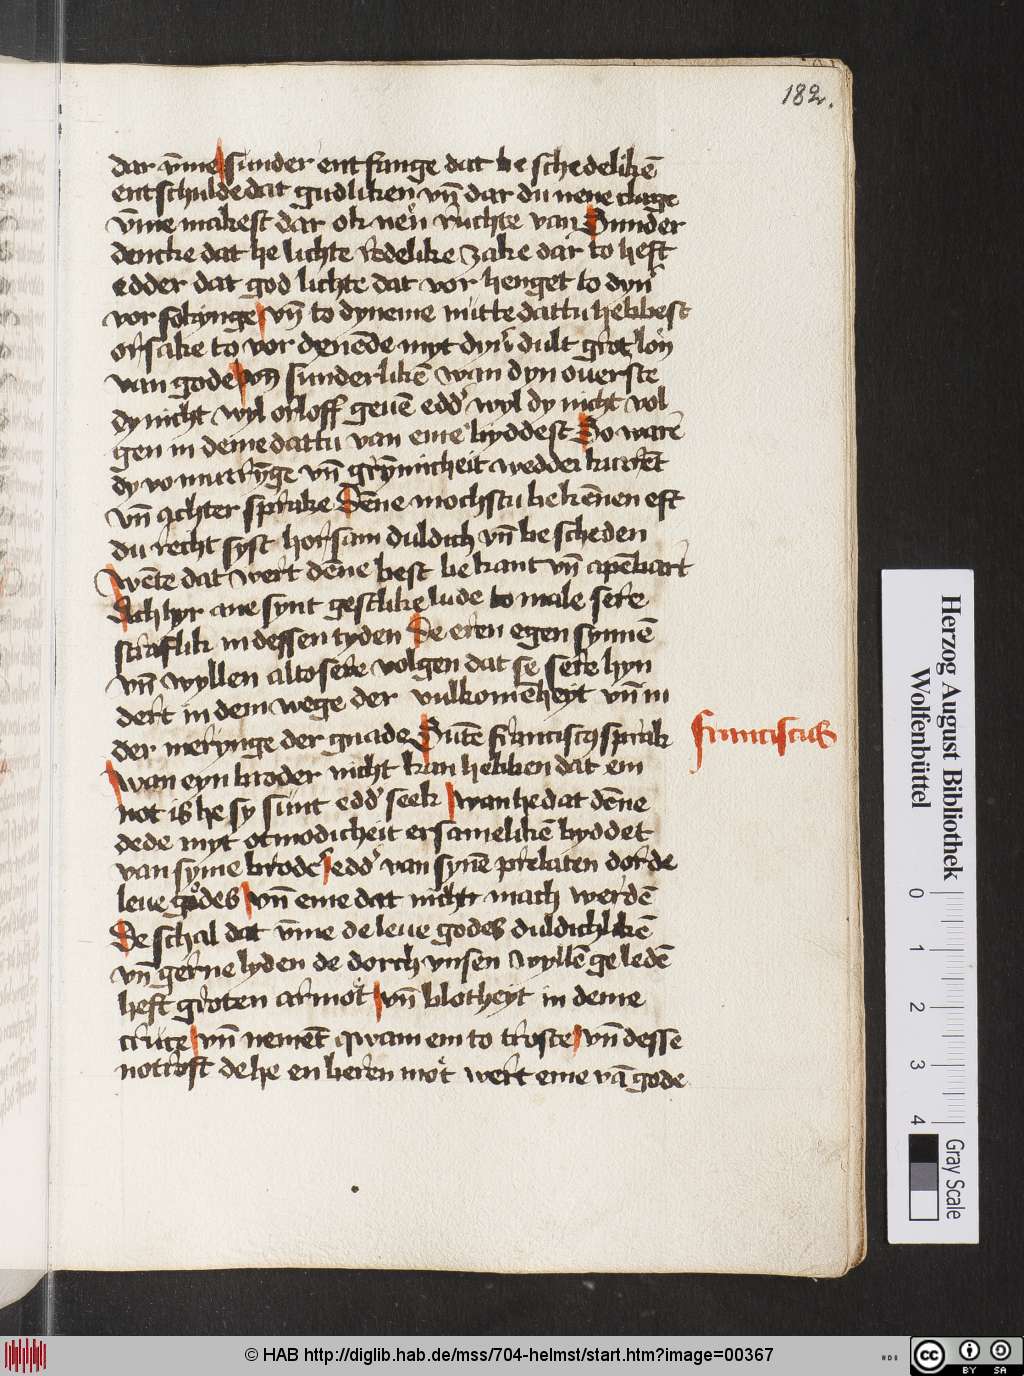 182.
dar vm̄e sunder entfange dat be schedelikē
entschulde dat gudliken vn̄ dar du nene clage
vm̄e makest dar ok nen ruchte van Sunder
dencke dat he lichte redelike zake dar to heft
edder dat god lichte dat vor henget to dyn̄
vor sokynge vn̄ to dyneme nutte dattu hebbest
orsake to vor denēde myt dyn̄ dult grot lon
van gode vn̄ sunderlikē wan dyn ouerste
dy nicht wyl orloff geuē edd' wyl dy nicht vol
gen in deme dattu van eme byddest So ware
dy vn̄ grȳmicheit wedder
vn̄ achter sprake Dēne mochstu bekēnen eft
du recht syst horsam duldich vn̄ be scheden
Wēte dat wert dēne best bekant vn̄ apēbart
Ach hyr ane synt gestlike lude to male sere
straflik in dessen tyden De eren egen synnē
vn̄ wyllen alto sere volgen dat se sere hyn
dert in dem wege der vulkomēheyt vn̄ in
der merynge der gnade Sūte franciscus sprak
Wan eyn broder nicht kan hebben dat em
not is he sy sunt edd' seek wan he dat dēne
dede myt otmodicheit ersamelikē byddet
van syme broder edd' van synē prelaten dor de
leue godes vn̄ eme dat nicht mach werdē
De schal dat vm̄e de leue godes duldichlikē
vn̄ gerne lyden de dorch vnsen wyllē geledē
heft groten armot vn̄ blotheyt in deme
cruce vn̄ nemēt qwam em to troste vn̄ desse
notroft de he en beren mot wert eme vā gode
franciscus
Herzog August Bibliothek
Wolfenbüttel
0 1 2 3 4
Gray Scale
© HAB http://diglib.hab.de/mss/704-helmst/start.htm?image=00367
HAB
cc BY SA